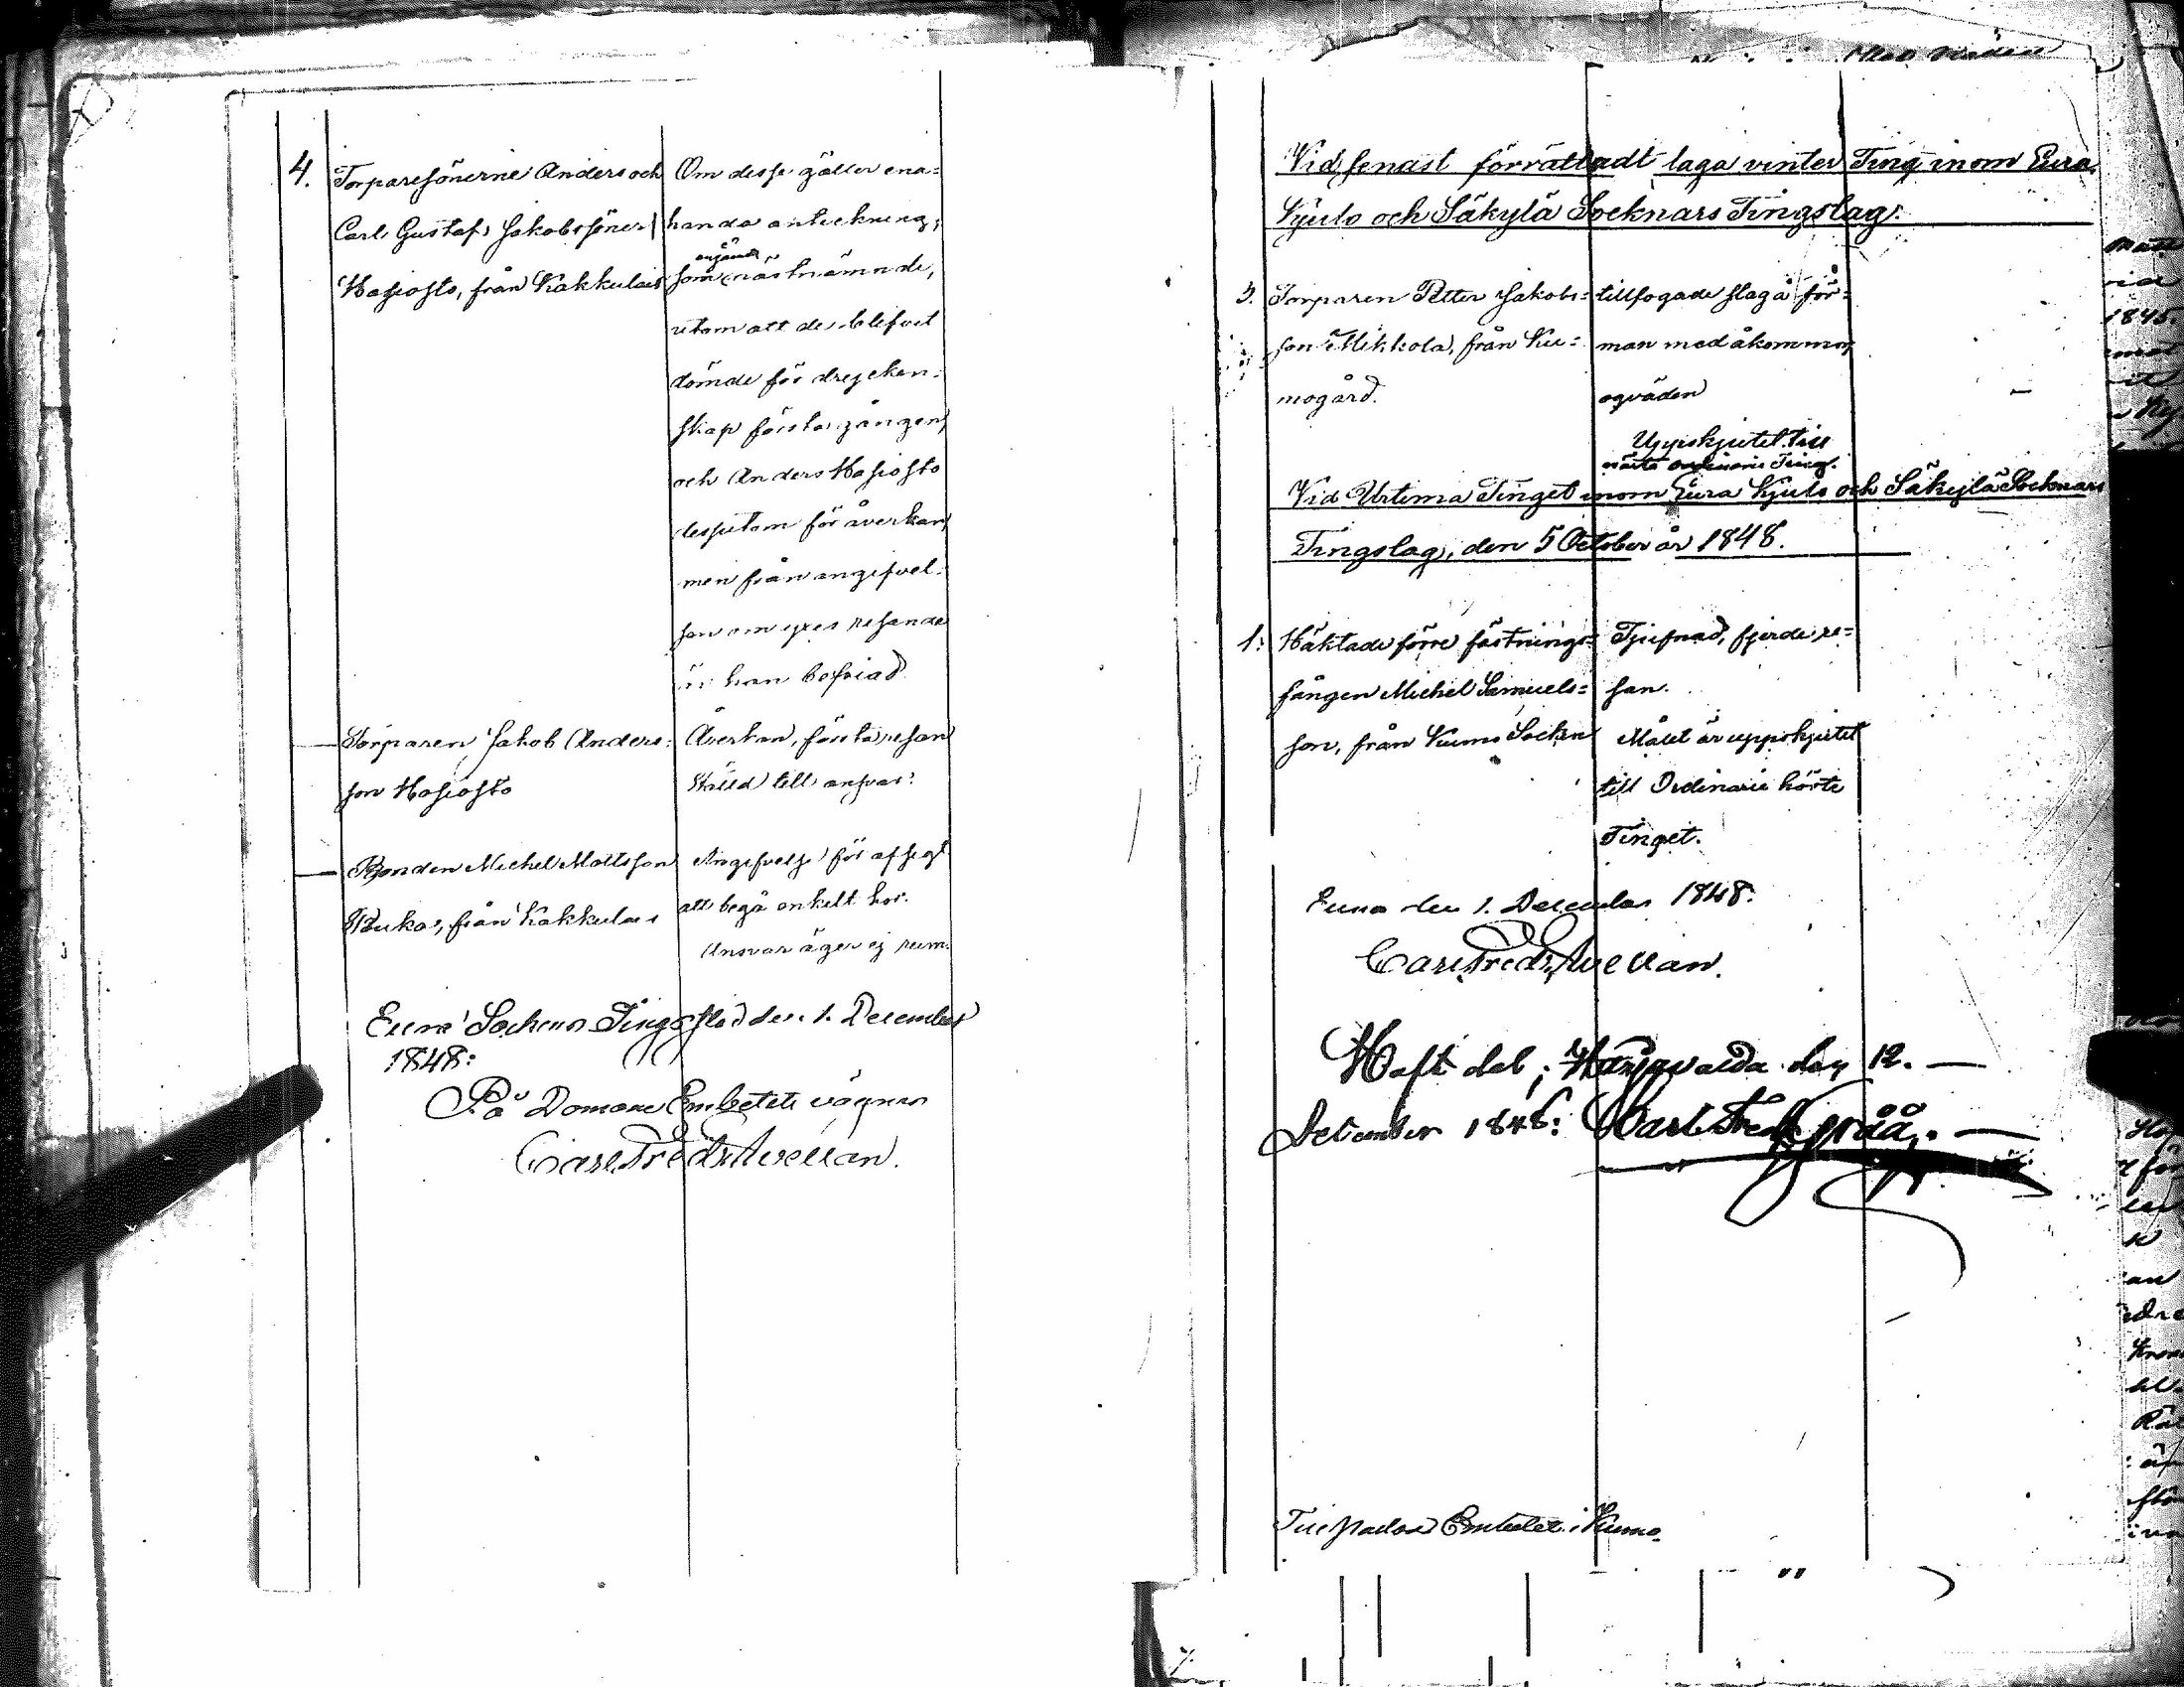 4. Torparesönerne Anders och
Carl Gustaf Jakobssöner
Hasiosto, från Kakkulais
Om desse gäller ena-
handa anteckning,
som näst nämnde,
utom att de blifvit
dömde för drycken-
skap första gången,
och Anders Hasiosto
dessutom för åverkan,
men från angifvel-
sen om
är han befriad.
Torparen Jakob Anders-
son Hasiosto
Åverkan, första resan
Ställd till ansvar.
Bonden Michel Mattsson
från Kakkulais
Angifvelse för afsigt
att begå enkelt hor.
Ansvar äger ej rum.
Eura Sockens Tingsstad den 1. December
1848:
På Domare Embetets vägnar
Carl Fredr. Avellan.
Vid senast förrättadt laga vinter Ting inom Eura,
Kjulo och Säkylä Socknars Tingslag.
3. Torparen Petter Jakobs-
son Mikkola, från Ku-
mogård.
tillfogade slag å för-
man med åkommor
ogväden
Uppskjutet till
nästa ordinarie Ting.
Vid Urtima Tinget inom Eura Kjulo och Säkylä Socknars
Tingslag, den 5 October år 1848.
1: Häktade förre fästnings-
fången Michel Samuels-
son, från Kumo Socken
Tjufnad, fjerde re-
san.
Målet är uppskjutet
till Ordinarie höste
Tinget.
Eura den 1. December 1848.
Carl Fredr. Avellan.
Haft del; den 12.
December 1848: Carl Fredr.
Till Pastors Embetet i Kumo.